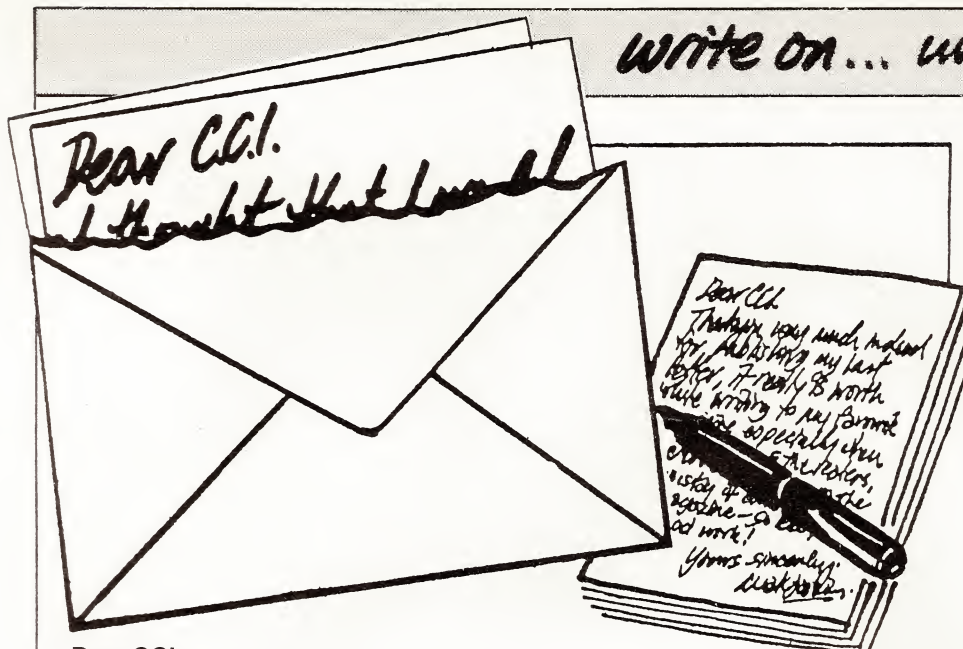 write on...
Dear C.C.I.
I thought that I
Dear CCI
Thankyou very much indeed
for publishing my last
letter, it really is worth
while writing to my favourite
especially when
the
work!
Yours sincerely.
Dear CCI